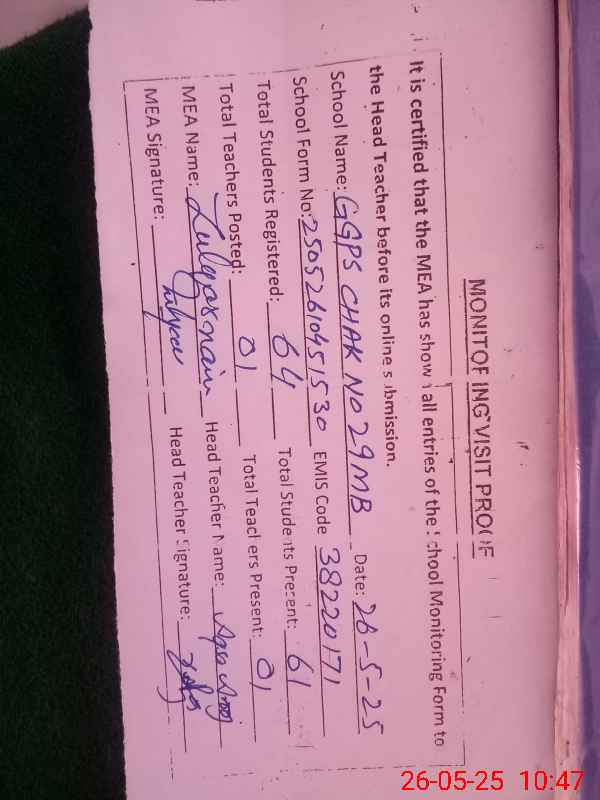 MONITORING VISIT PROOF
It is certified that the MEA has shown all entries of the School Monitoring Form to
the Head Teacher before its online submission.
School Name: GGPS CHAK NO 29MB Date: 26-5-25
School Form No: 25052610451530 EMIS Code 38220171
Total Students Registered: 64 Total Students Present: 61
Total Teachers Posted: 01 Total Teachers Present: 01
MEA Name: Zulqarnain Head Teacher Name:
MEA Signature: Head Teacher Signature:
26-05-25 10:47